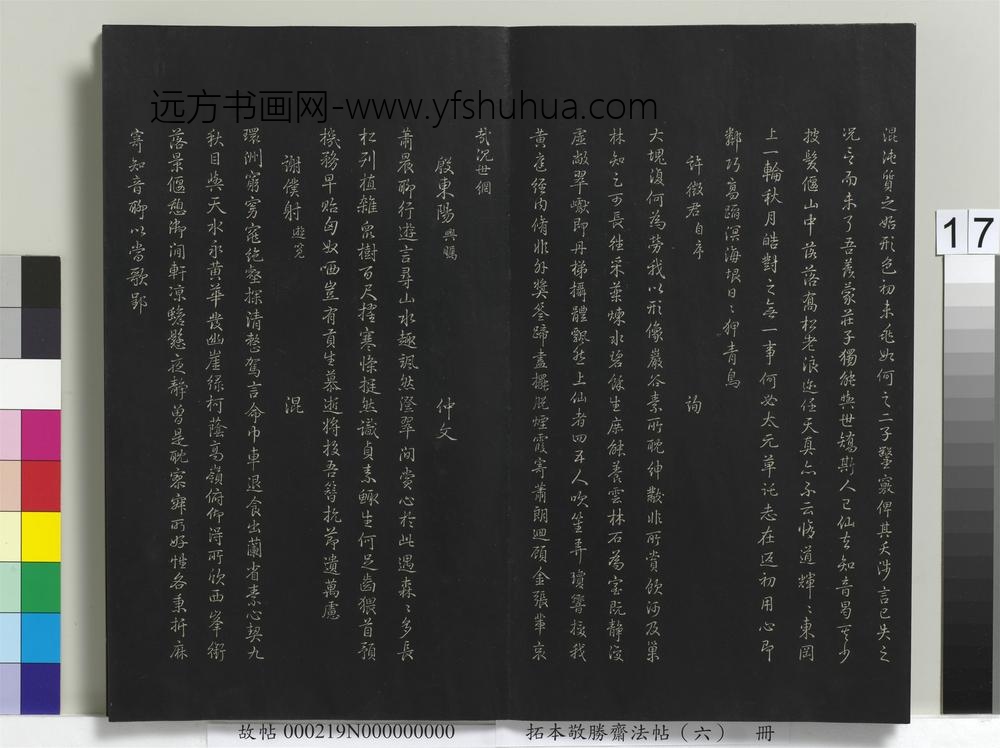 混沌質之始形色初未兆如何之二子鑿竅俾其夭涉言已失之
況言而未了吾羨蒙莊子獨能與世矯斯人已仙去知音曷
披髮偃山中落落喬松老浪迹任天真亦不云悟道輝〻東岡
上一輪秋月皓對之無一事何必太元草託志在邃初用心即
鄰巧高蹈溟海垠日〻狎青鳥
許徵君自序 詢
大塊復何為勞我以形像巖谷素所耽紳黻非所賞飲河及巢
林知之可長往采藥煉水碧餘生庶能養雲林石為室既靜復
虛敞翠巘即丹梯攝體飄然上仙者四五人吹笙弄瓊響接我
黃庭經內脩非外獎筌蹄盡擺脫煙霞寄蕭朗迴顧金張輩哀
哉況世網
殷東陽興矚 仲文
蕭晨聊行遊言尋山水趣颯然澄翠間賞心於此遇森〻多長
松列植雜眾樹百尺撐寒條挺然識貞素鯫生何足齒猥首預
機務早貽匈奴哂豈有貢生慕逝將投吾簪抗節遺萬慮
謝僕射遊覽 混
環洲窮窈窕絕壑探清愁駕言命巾車退食出蘭省素心契九
秋目與天水永黃華發幽崖綠柯蔭高嶺俯仰得所欣西峯銜
落景偃憩御澗軒凉蟾懸夜靜曾是耽寂寐所好性各秉折麻
寄知音聊以當歌郢
远方书画网-www.yfshuhua.com
17
故帖 000219N000000000
拓本敬勝齋法帖（六） 冊